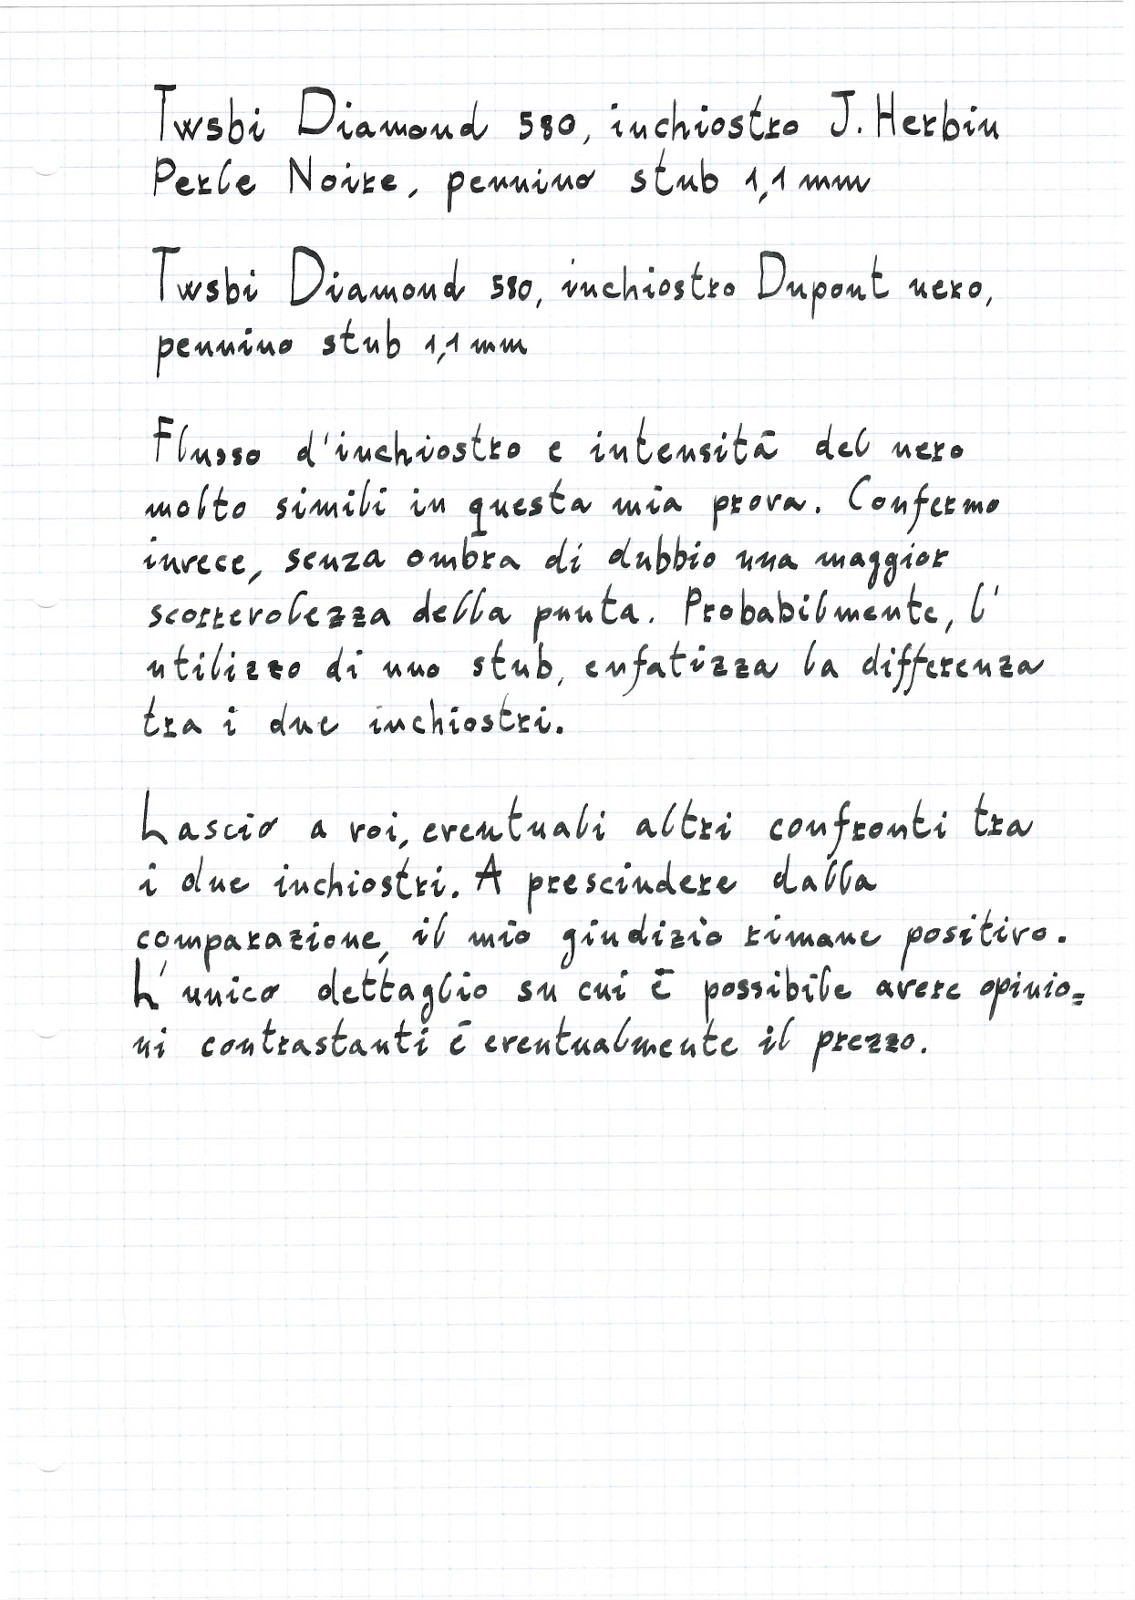 Twsbi Diamond 580, inchiostro J. Herbin
Perle Noire, pennino stub 1,1 mm
Twsbi Diamond 580, inchiostro Dupont nero,
pennino stub 1,1 mm
Flusso d'inchiostro e intensità del nero
molto simili in questa mia prova. Confermo
invece, senza ombra di dubbio una maggior
scorrevolezza della punta. Probabilmente, l'
utilizzo di uno stub, enfatizza la differenza
tra i due inchiostri.
Lascio a voi, eventuali altri confronti tra
i due inchiostri. A prescindere dalla
comparazione, il mio giudizio rimane positivo.
L'unico dettaglio su cui è possibile avere opinio=
ni contrastanti è eventualmente il prezzo.